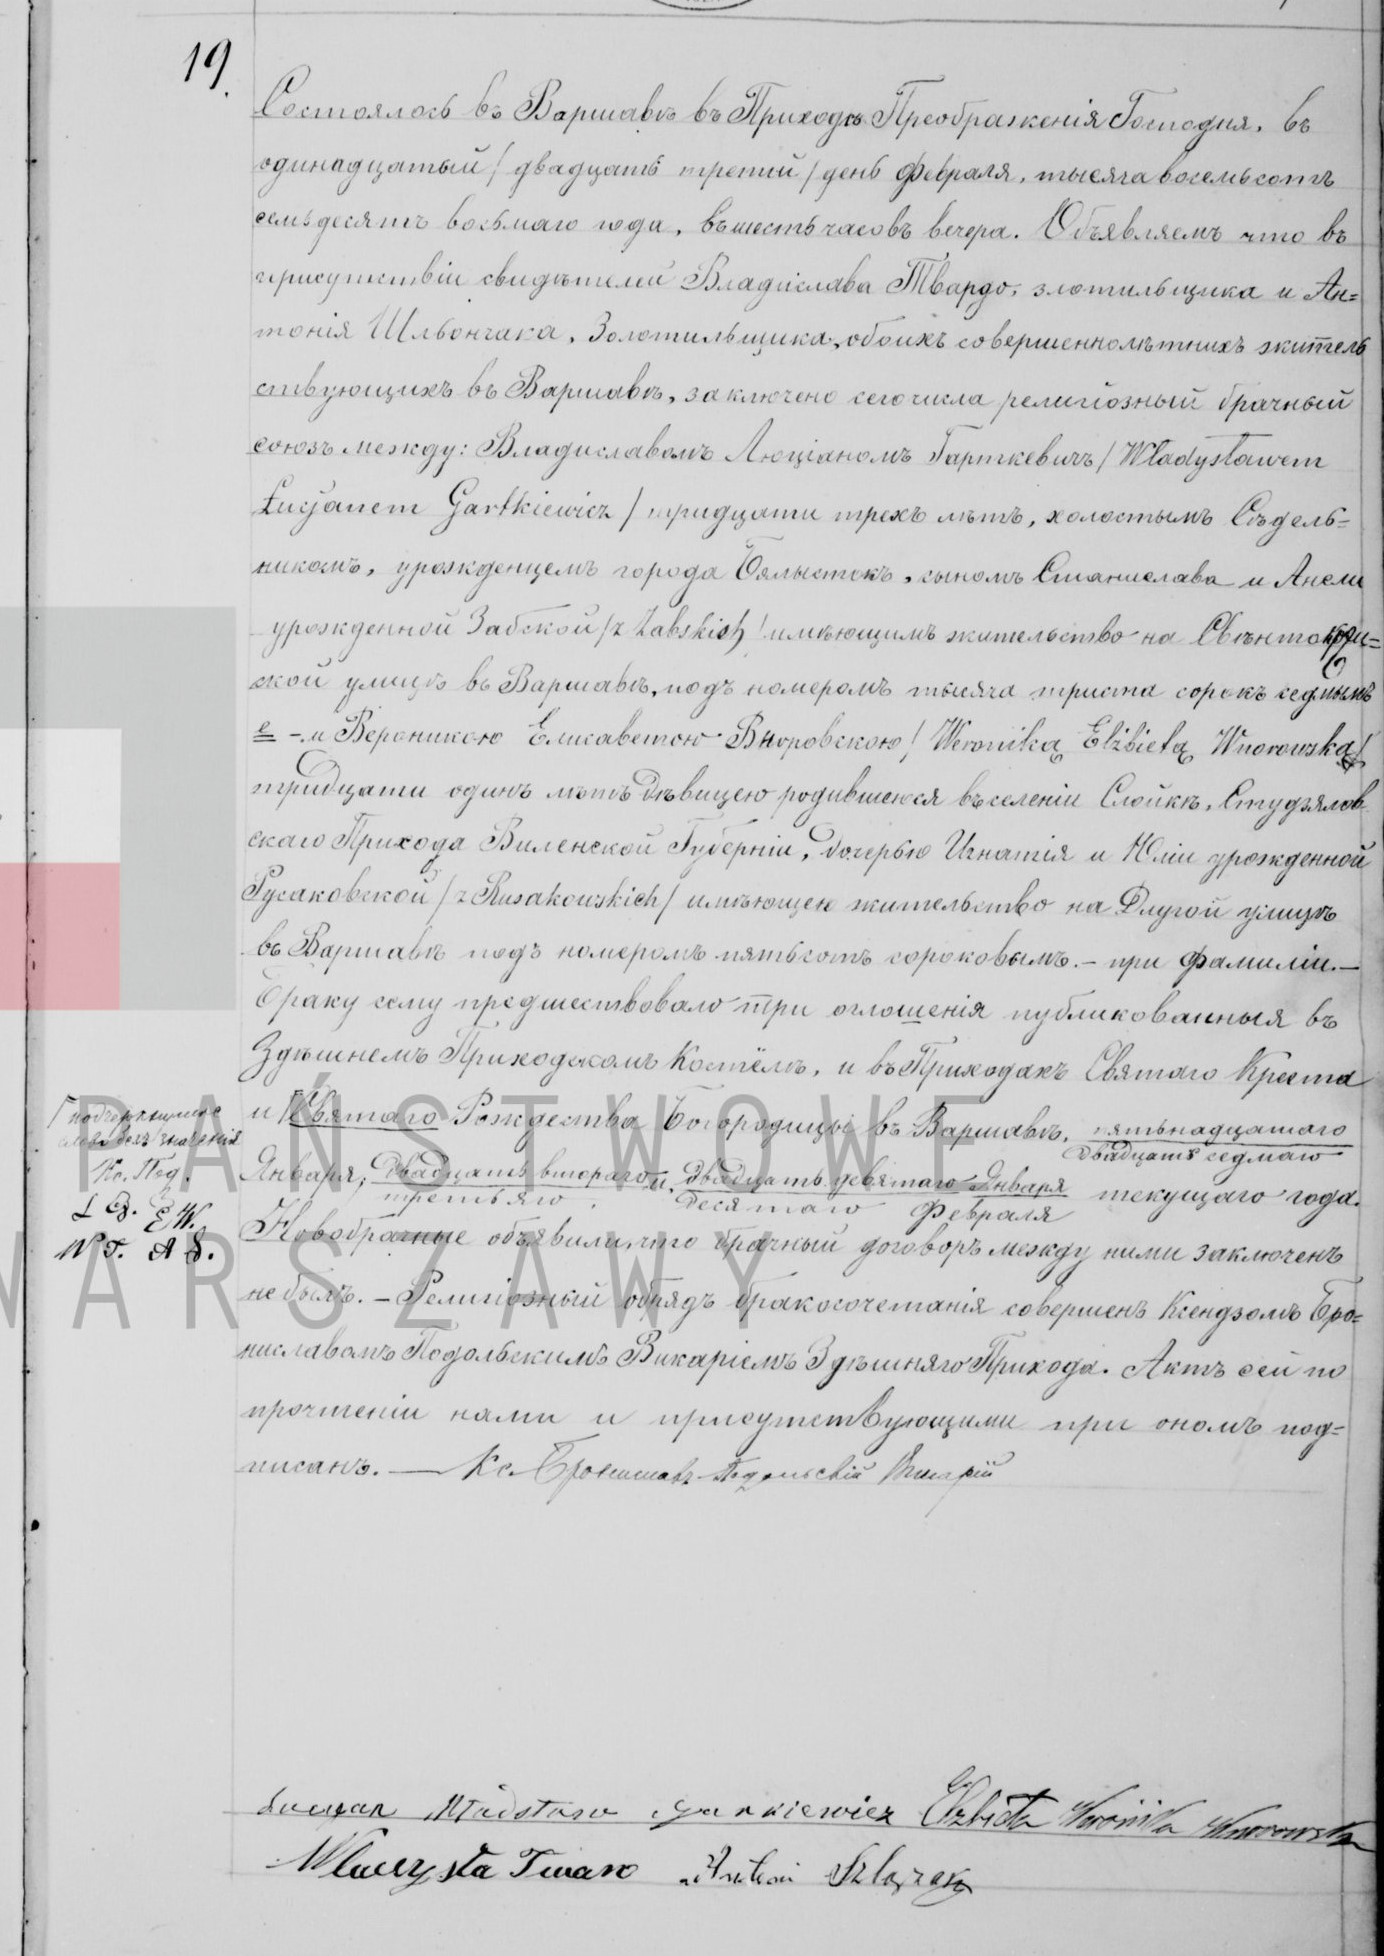 19.
Состоялось въ Варшавѣ въ Приходѣ Преображенія Господня, въ
одинадцатый / двадцать третій / день Февраля, тысяча восемьсотъ
семьдесятъ восьмаго года, въ шесть часовъ вечера. Объявляемъ что въ
присутствіи свидѣтелей Владислава Твардо, злотильщика и Ан=
тонія Шльончака, Золотильщика, обоихъ совершеннолѣтнихъ житель
ствующихъ въ Варшавѣ, заключено сего числа религіозный брачный
союзъ между: Владиславомъ Люціаномъ Гарткевичъ / Władysławem
Łucjanem Gartkiewicz / тридцати трехъ лѣтъ, холостымъ Сѣдель=
никомъ, урожденцемъ города Бялыстокъ, сыномъ Станислава и Анели
урожденной Забской / z Zabskich / имѣющимъ жительство на Свѣнтокрж=
ской улицѣ въ Варшавѣ, подъ номеромъ тысяча триста сорокъ седмымъ
е – и Вероникою Елисаветою Вноровскою / Weroniką Elżbietą Wnorowską /
тридцати одинъ лѣтъ Дѣвицею родившеюся въ селеніи Слойкѣ, Студзялов
скаго Прихода Виленской Губерніи, дочерью Игнатія и Юліи урожденной
Русаковской / z Rusakowskich / имѣющею жительство на Длугой улицѣ
въ Варшавѣ подъ номеромъ пятьсотъ сороковымъ. – при фамиліи. –
Браку сему предшествовало три оглошенія публикованныя въ
Здѣшнемъ Приходскомъ Костёлѣ, и въ Приходахъ Святаго Креста
и Святаго Рождества Богородицы въ Варшавѣ, пятьнадцатаго
двадцать седмаго
Января, двадцать втораго и двадцать девятаго Января текущаго года.
третьяго десятаго Февраля
Новобрачные объявили, что брачный договоръ между ними заключенъ
не былъ. – Религіозный обрядъ бракосочетанія совершенъ Ксендзомъ Бро=
ниславомъ Подольскимъ Викаріемъ Здѣшняго Прихода. Актъ сей по
прочтеніи нами и присутствующими при ономъ под=
писанъ. — Кс. Брониславъ Подольскій Викарій
подчеркнутое
слово безъ значенія
Кс. Под.
Ł G. E W.
W T. A S.
Lucyan Władsław Gartkiewicz Elzbieta Weronika Wnorowska
Władysła Twardo Antoni Szlązak
PAŃSTWOWE
WARSZAWY